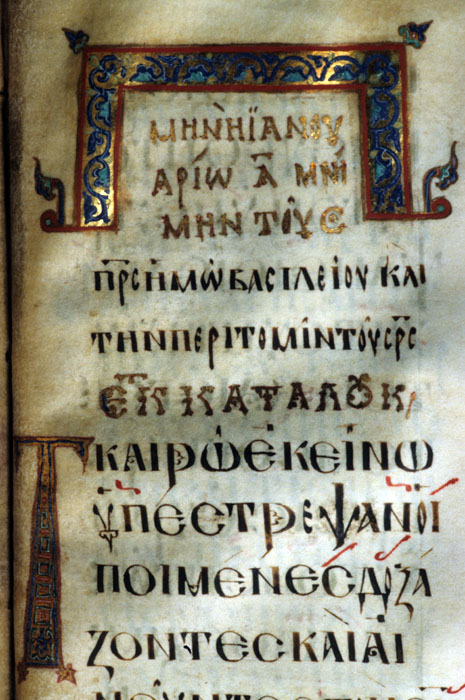 ΜΗΝῚ ἸΑΝΟΥ
ΑΡΙΩ Α̅ ΜΝΙ
ΜΗΝ ΤΟΥ Ε
Π̅Ρ̅Σ ΗΜΩ ΒΑΣΙΛΕΙΟΥ ΚΑΙ
ΤΗΝ ΠΕΡΙΤΟΜΙΝ ΤΟΥ
ΕΚ ΚΑΤΑ ΛΟΥΚ/
Τ ΚΑΙΡΩ ΕΚΕΙΝΩ
ΫΠΕΣΤΡΕΨΑΝ ΟΙ
ΠΟΙΜΕΝΕΣ ΔΟΞΑ
ΖΟΝΤΕΣ ΚΑΙ ΑΙ